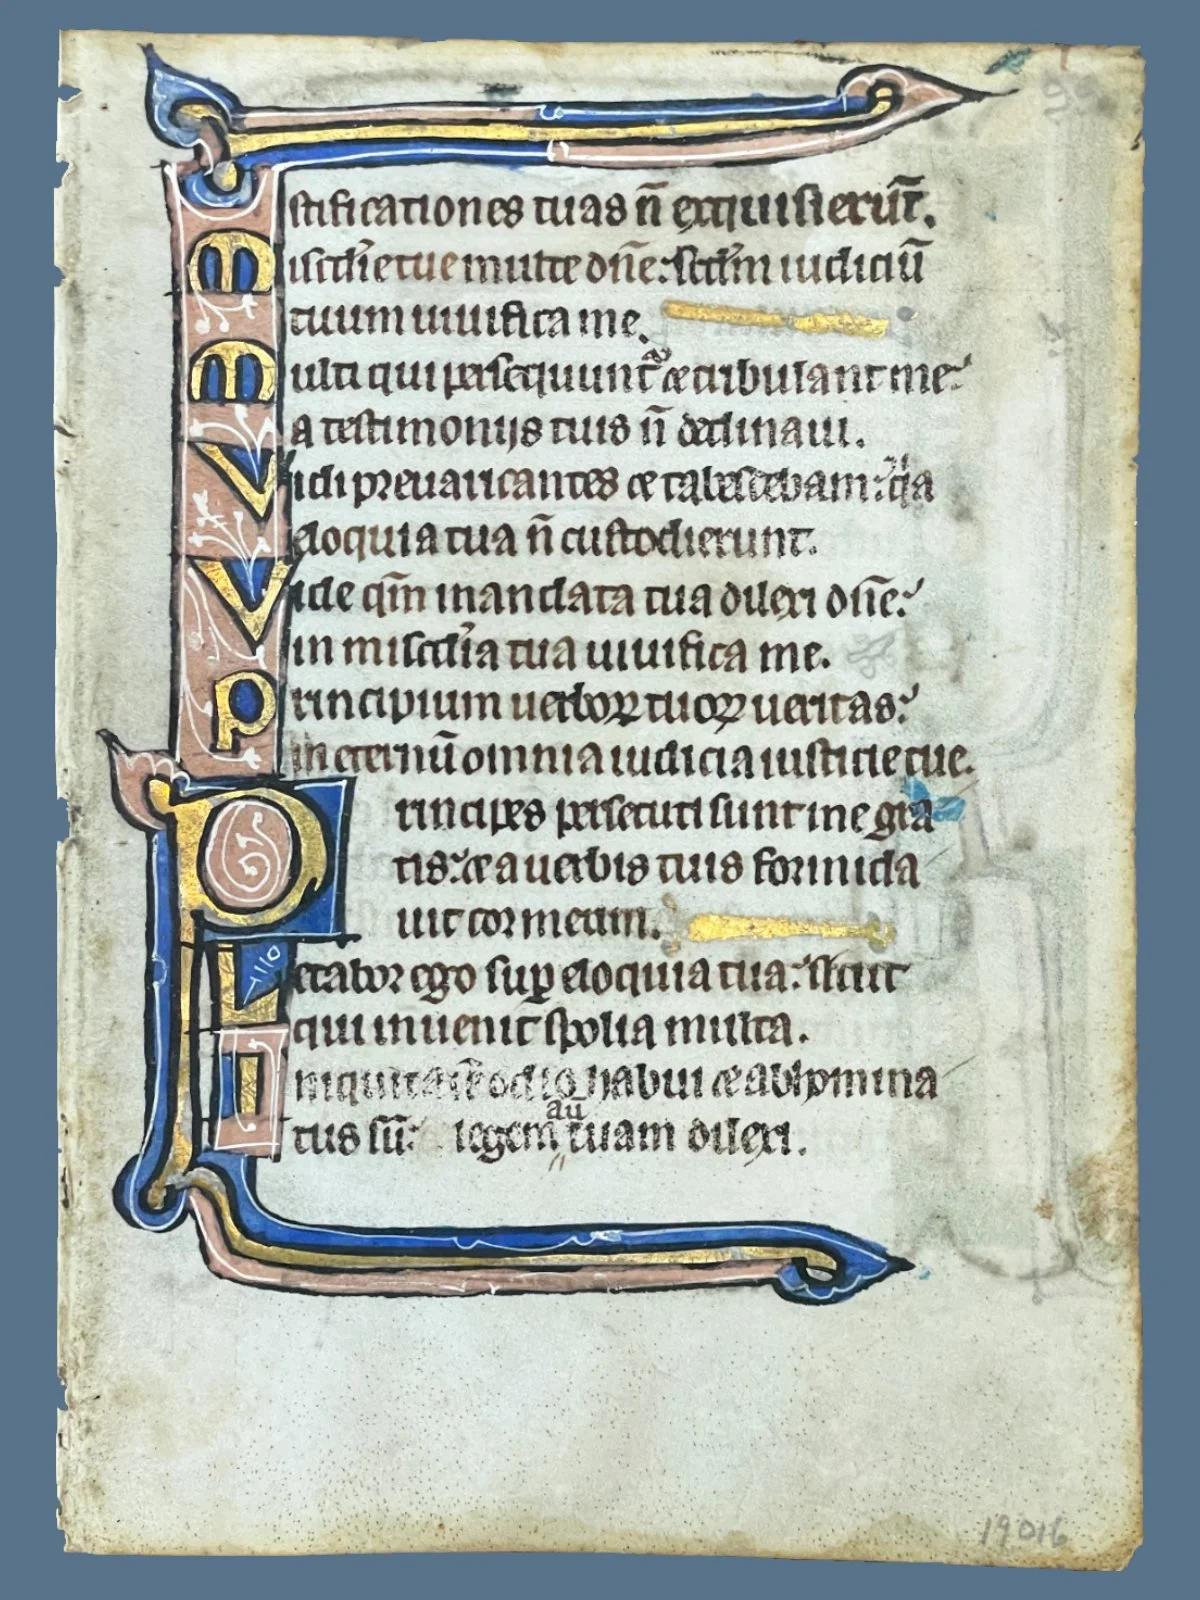 stificationes tuas n̄ exquisierūt.
Misc̄die tue multe dn̄e: scd̄m iudiciū
tuum uiuifica me.
Multi qui persequunt᷑ ⁊ tribulant me:
a testimoniis tuis n̄ declinaui.
Vidi preuaricantes ⁊ tabescebam: q̄a
eloquia tua n̄ custodierunt.
Vide qm̄ mandata tua dilexi dn̄e:
in misc̄dia tua uiuifica me.
Principium uerboꝝ tuoꝝ ueritas:
in eternū omnia iudicia iusticie tue.
Principes persecuti sunt me gra
tis: ⁊ a uerbis tuis formida
uit cor meum.
Letabor ego suꝑ eloquia tua: sicut
qui inuenit spolia multa.
Iniquitatē odio habui ⁊ abhomina
tus sū: legem aū tuam dilexi.
19016